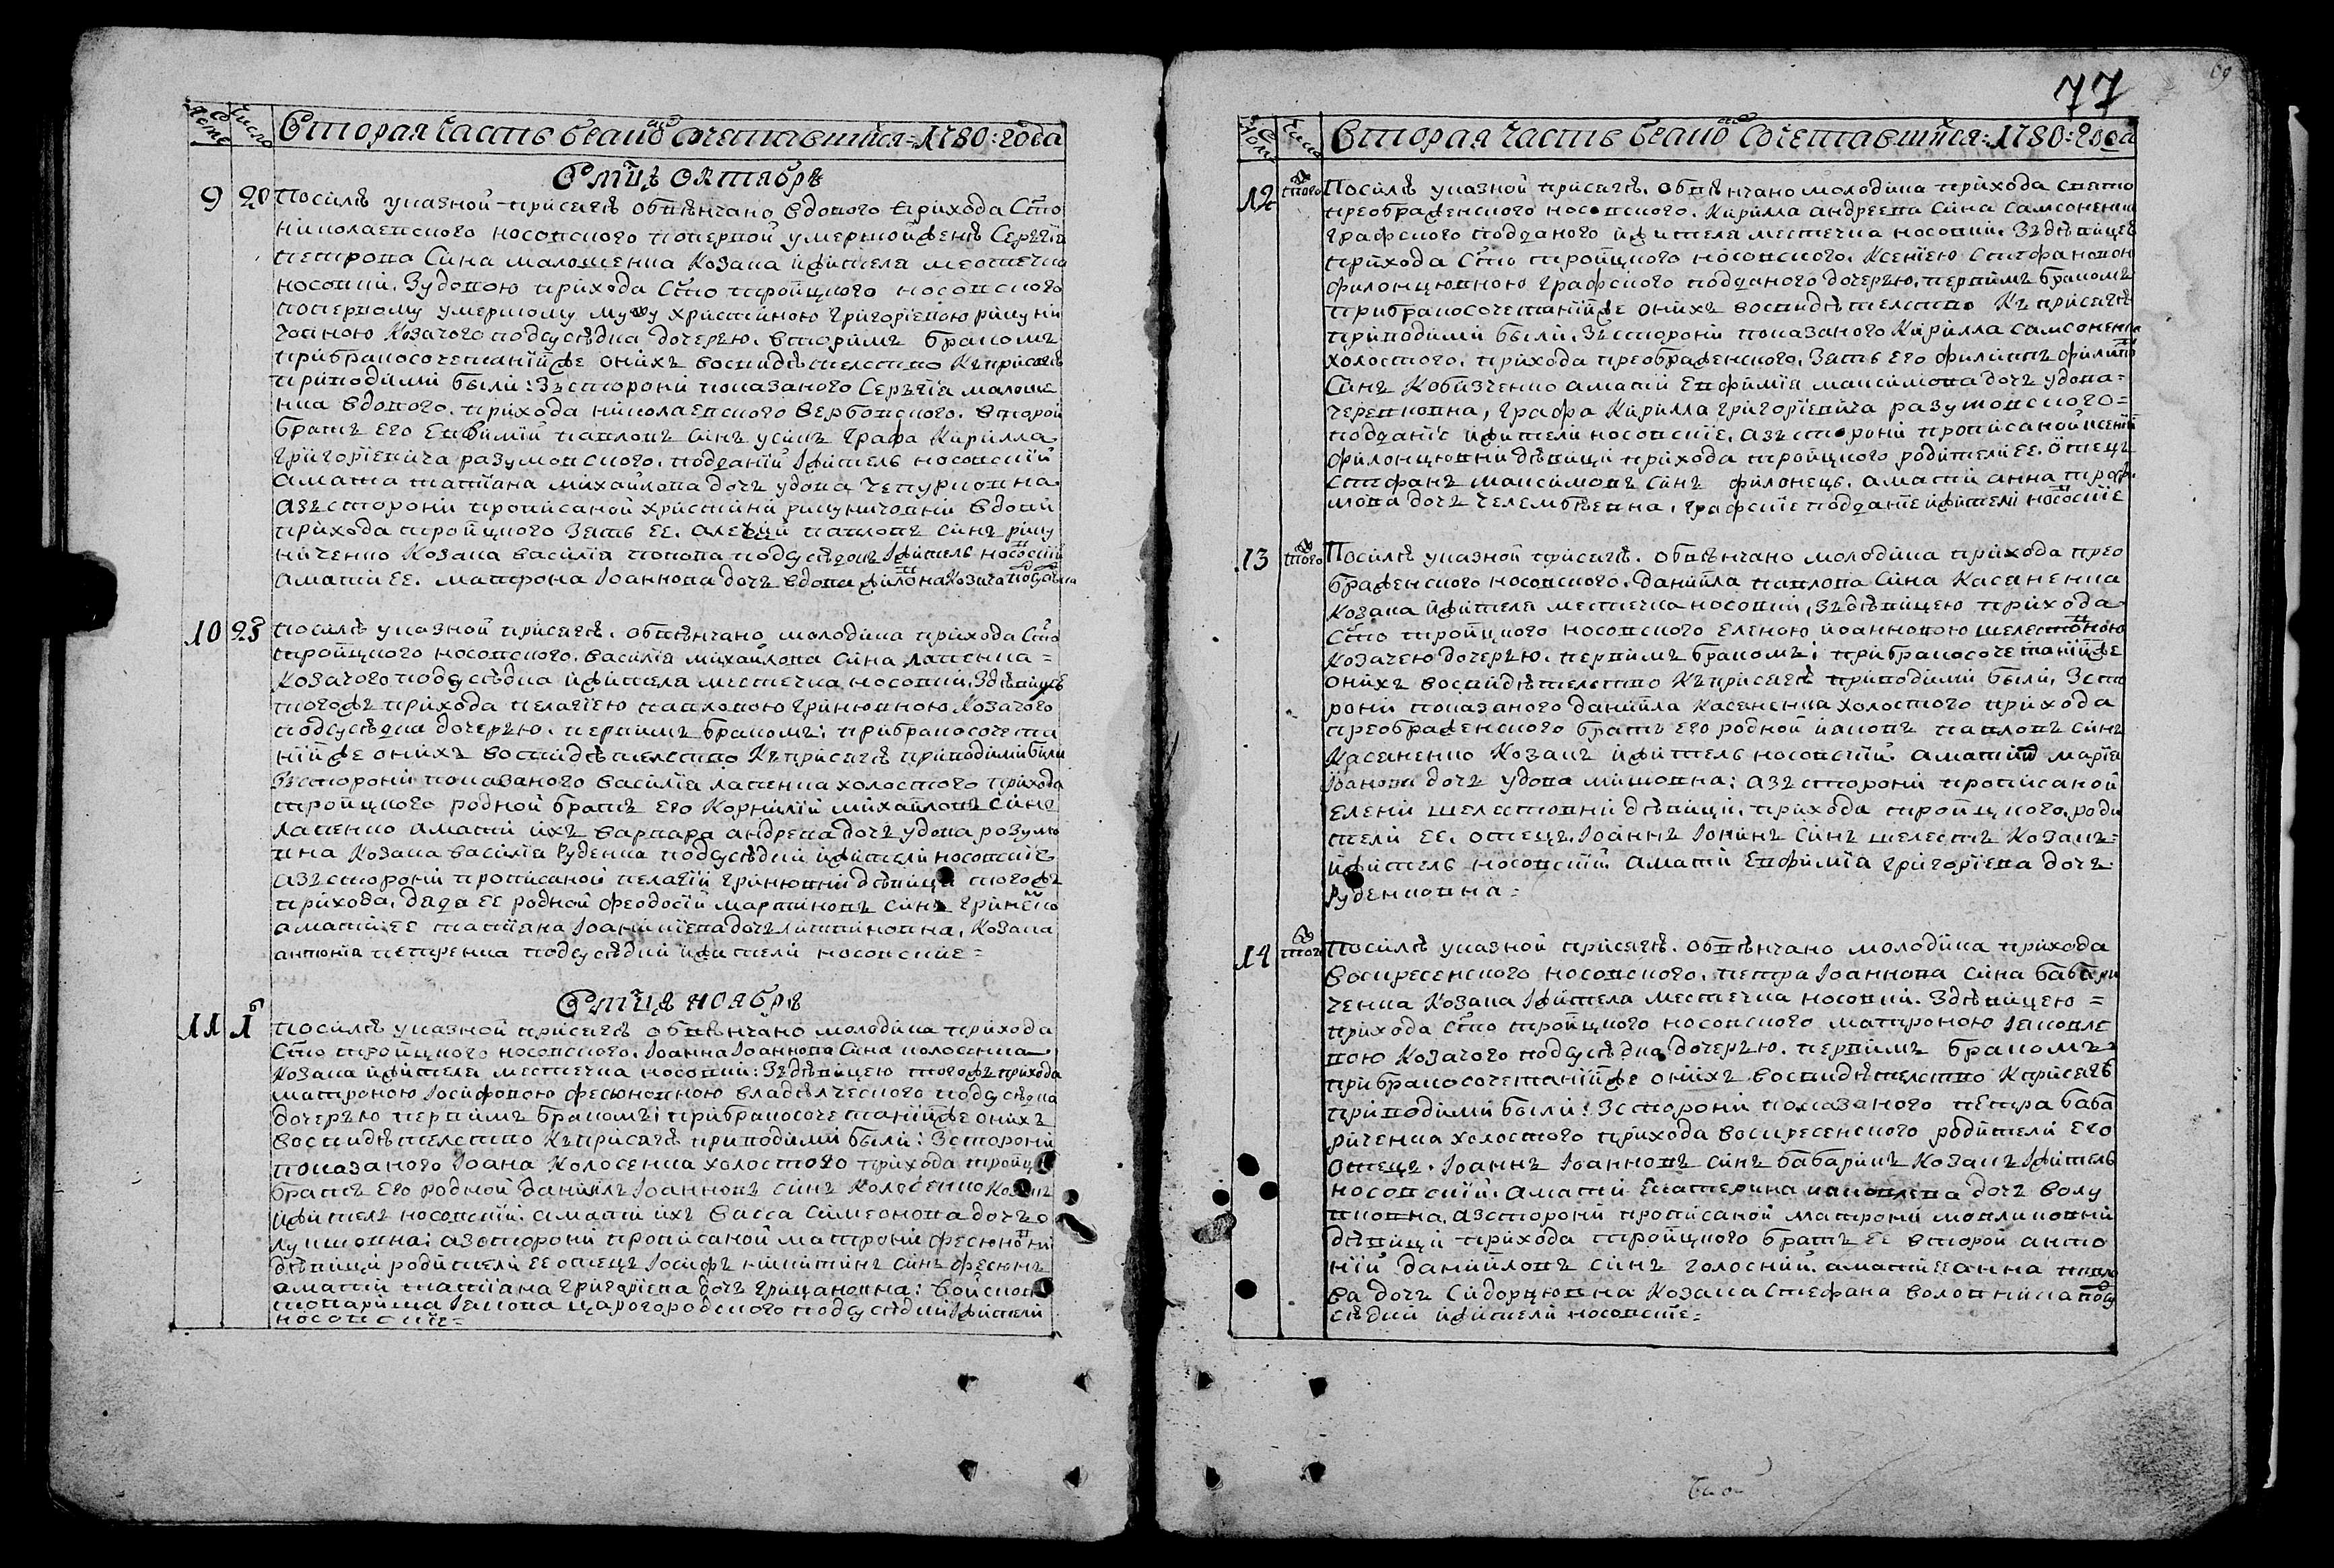 Вторая часть бракосочетавшийся 1780: года
В мцѣ октябрѣ
9 20 По силѣ указной присягѣ обвѣнчано вдового прихода Сто
николаевского носовского по первой умершой женѣ Сергѣя
петрова сина малошенка козака жителя местечка
носовки. З удовою прихода Сто тройцкого носовского
по первому умершому мужу христиною григориевою рицуни
човною козачого подсусѣдка дочерью. вторимъ бракомъ
при бракосочетанїи же онихъ во свидѣтелство къ присягѣ
приводими были: зъ сторони показаного Сергѣя малоше
нка вдового. прихода николаевского вербовского. второй
братъ его Евфимїй павловъ синъ усикъ графа Кирилла
григориевича разумовского. подданїй жытель носовскїй
а мати татияна михайлова дочъ удова чепурковна
а зъ сторони прописаной христини рицуничовни вдови
прихода тройцкого зять ее. алеѯїй павловъ синъ рицу
ниченко козака василїя попова подсусѣдокъ жытель носовский
а мати ее. матрона Іоаннова дочъ вдова козачого подсусѣдка
10 23 По силѣ указной присягѣ. обвѣнчано молодика прихода Сто
тройцкого носовского. василїя михайлова сина лапенка =
козачого подсусѣдка жителя местечка носовки. З дѣвицею
того жъ прихода пелагїею павловою гринювною козачого
подсусѣдка дочерью. первимъ бракомъ: при бракосочета
нїи же онихъ во свидѣтелство къ присягѣ приводими били
зъ сторони показаного василїя лапенка холостого прихода
тройцкого родной братъ его Корнилїй михайловъ синъ
лапенко а мати ихъ варвара андреева дочъ удова розумо
вна козака василїя руденка подсусѣдки жители носовскїе
а зъ сторони прописаной пелагїи гринювни дѣвици того жъ
прихода. дядя ее родной феодосїй мартиновъ синъ гриненко
а мати ее татїана Іоаникїева дочъ литвиновна, козака
антонїя петренка подсусѣдки жители носовские =
В мцѣ ноябрѣ
11 1 По силѣ указной присягѣ обвѣнчано молодика прихода
Сто тройцкого носовского. Іоанна Іоаннова сина колосенка
козака жителя местечка носовки: зъ дѣвицею того жъ прихода
матроною Іосифовою фесюновною владѣлческого подсусѣдка
дочерью первимъ бракомъ: при бракосочетанїи же онихъ
во свидѣтелство къ присягѣ приводими были: з сторони
показаного Іоана Колосенка холостого прихода тройц
братъ его родной данїилъ Іоанновъ синъ колосенко козакъ
жителъ носовскїй. а мати ихъ васса симеонова дочъ о
лушковна: а зъ сторони прописаной матрони фесюновни
дѣвици родители ее отецъ Іосифъ никитинъ синъ фесюнъ
а мати татїана григорїева дочъ грицановна: войсков
товариша Іакова царогородского подсусѣдки жители
носовские =
77
69
Вторая часть бракосочетавшийся: 1780: года
12 того По силѣ указной присягѣ. обвѣнчано молодика прихода свято
преображенского носовского. Кирилла андреева сина самсоненка
графского подданого жителя местечка носовки. зъ дѣвицею
прихода Сто тройцкого носовского. Ксенїею стефановою
филонцювною графского подданого дочерью. первимъ бракомъ
при бракосочетанїи же онихъ во свидѣтелство къ присягѣ
приводими были. зъ сторони показаного Кирилла самсоненка
холостого. прихода преображенского. зять его филиппъ филипо
синъ кобизченко а мати Евфимїя максимова дочъ удова =
черешковна, графа Кирилла григорїевича разумовского =
подданїе жители носовскїе. а зъ сторони прописаной ксении
филонцювни дѣвици прихода тройцкого родители ее. отецъ
стефанъ максимовъ синъ филонець. а мати анна трофи
мова дочъ челембѣевна, графские подданїе жители носовские
13 того По силѣ указной присягѣ. обвѣнчано молодика прихода прео
браженского носовского. данїила павлова сина касяненка
козака жителя местечка носовки, зъ дѣвицею прихода
Сто тройцкого носовского еленою иоанновою шелестовною
козачею дочерью. первимъ бракомъ: при бракосочетанїи же
онихъ во свидѣтелство къ присягѣ приводими были, з сто
рони показаного данїила касяненка холостого прихода
преображенского братъ его родной иаковъ павловъ синъ
касяненко козакъ жителъ носовскїй. а мати марїя
Іоанова дочъ удова мишовна: а зъ сторони прописаной
елени шелестовни дѣвици. прихода тройцкого. роди
тели ее. отецъ. Іоаннъ Іонинъ синъ шелестъ козакъ =
жителъ носовскїй а мати Евфимїя григорїева дочъ
руденковна =
14 того По силѣ указной присягѣ. обвѣнчано молодика прихода
воскресенского носовского. петра Іоаннова сина бабари
ченка козака жителя местечка носовки. з дѣвицею =
прихода Сто тройцкого носовского матроною Іаковле
вою козачого подсусѣдка дочерью. первимъ бракомъ
при бракосочетанїи же онихъ во свидѣтелство к присягѣ
приводими были: з сторони показаного петра баба
риченка холостого прихода воскресенского родители его
отецъ. Іоаннъ Іоанновъ синъ бабарикъ козакъ жителъ
носовскїй. а мати Екатерина иаковлева дочъ волу
вновна. а з сторони прописаной матрони
дѣвици прихода тройцкого братъ ее второй анто
нїй данїиловъ синъ голоснїй. а мати ее анна павло
ва дочъ сидорцювна козака стефана воловника подсу
сѣдки жители носовские =